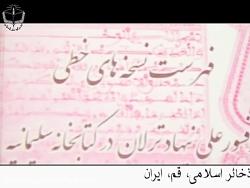 فهرست نسخه‌های خطی
علی نهاد ترلان در کتابخانه سلیمانیه
ذخائر اسلامی، قم، ایران